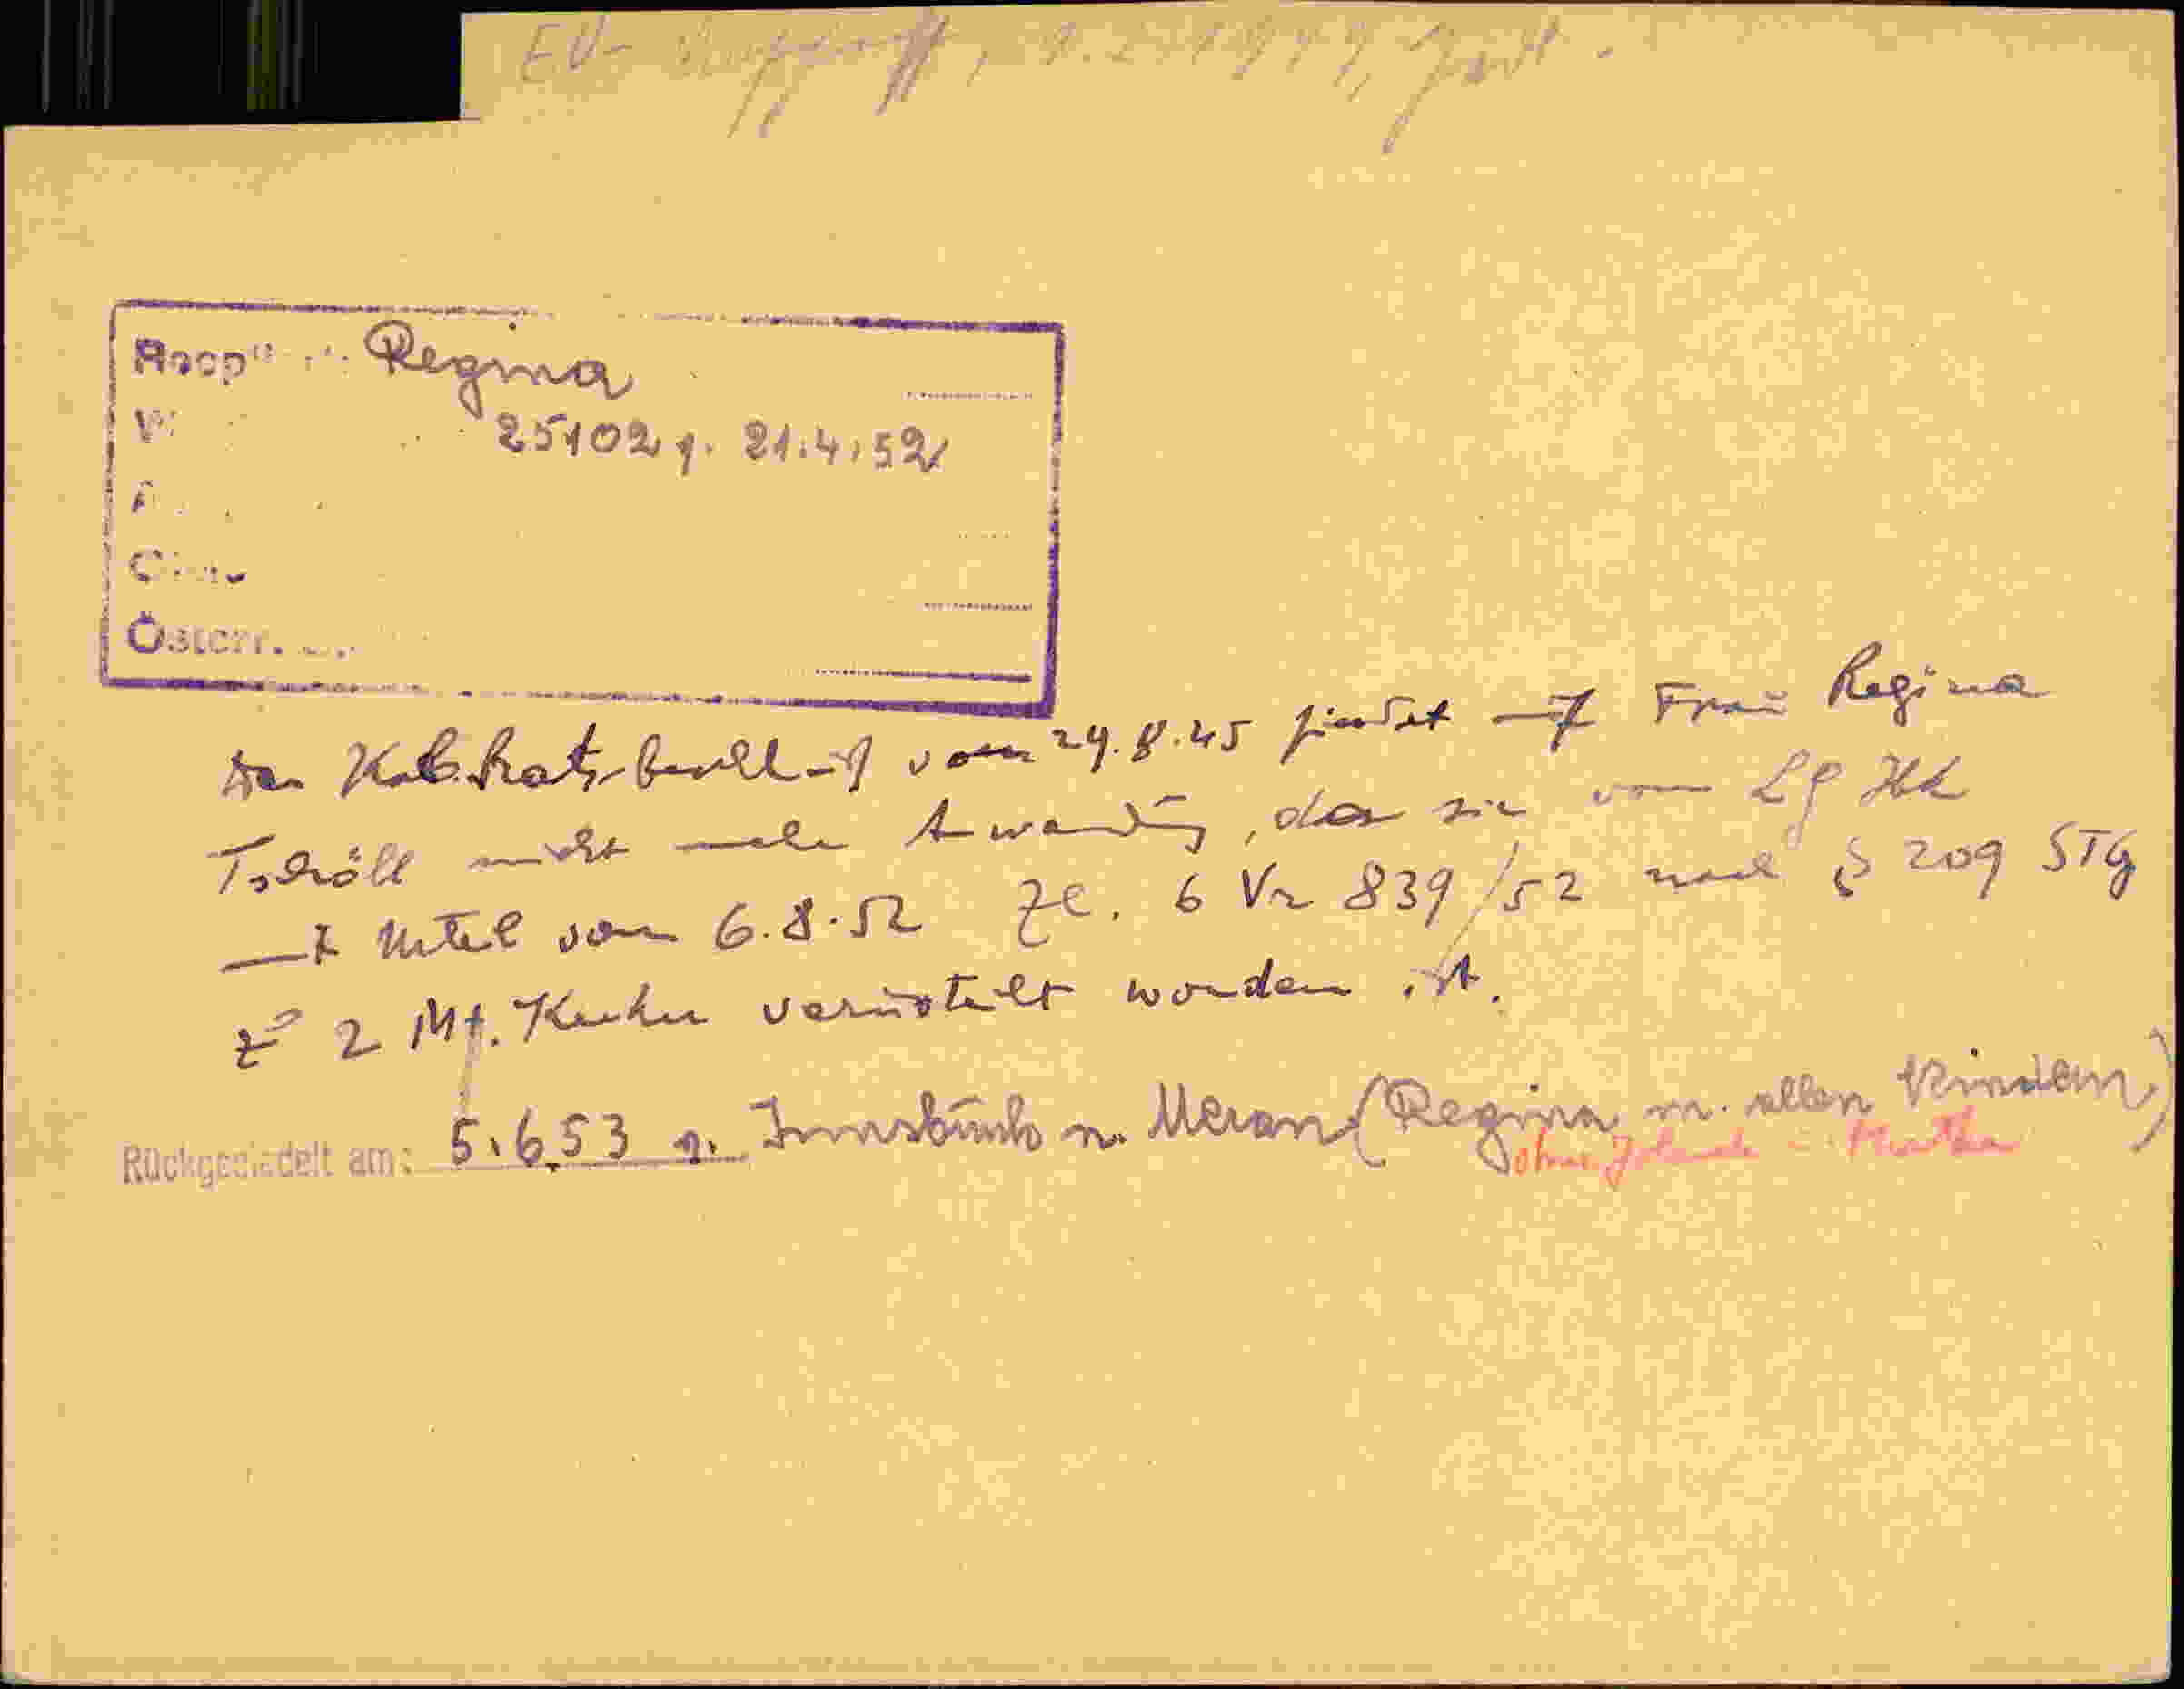 EV-
Regina
25102 g. 21.4.52
Österr.
Der Kab.Ratsbeschluß vom 29.8.45 findet auf Frau Regina
Tschöll nicht mehr Anwendung, da sie vom LG Ibk
mit Urteil vom 6.8.52 Zl. 6 Vr 839/52 nach § 209 STG
zu 2 Mt. Kerker verurteilt worden ist.
Rückgesiedelt am: 5.6.53 v. Innsbruck n. Meran (Regina m. allen Kindern)
ohne Jolanda u. Martha